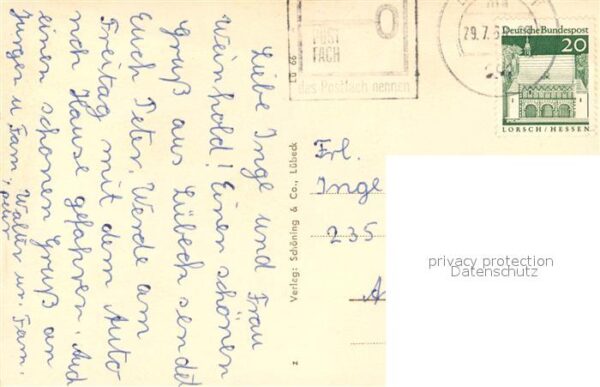 Liebe Inge und Frau
Weinhold! Einen schönen
Gruß aus Lübeck sendet
Euch Peter. Werde am
Freitag mit dem Auto
nch Hause gefahren. Auch
einen schönen Gruß an
Jürgen u. Fam., Walter un. Fam.
Peter
LÜ 66
Verlag: Schöning & Co., Lübeck
z
POST
FACH
das Postfach nennen
29.7.6
Deutsche Bundespost
20
LORSCH/HESSEN
Frl.
Inge
235
privacy protection
Datenschutz